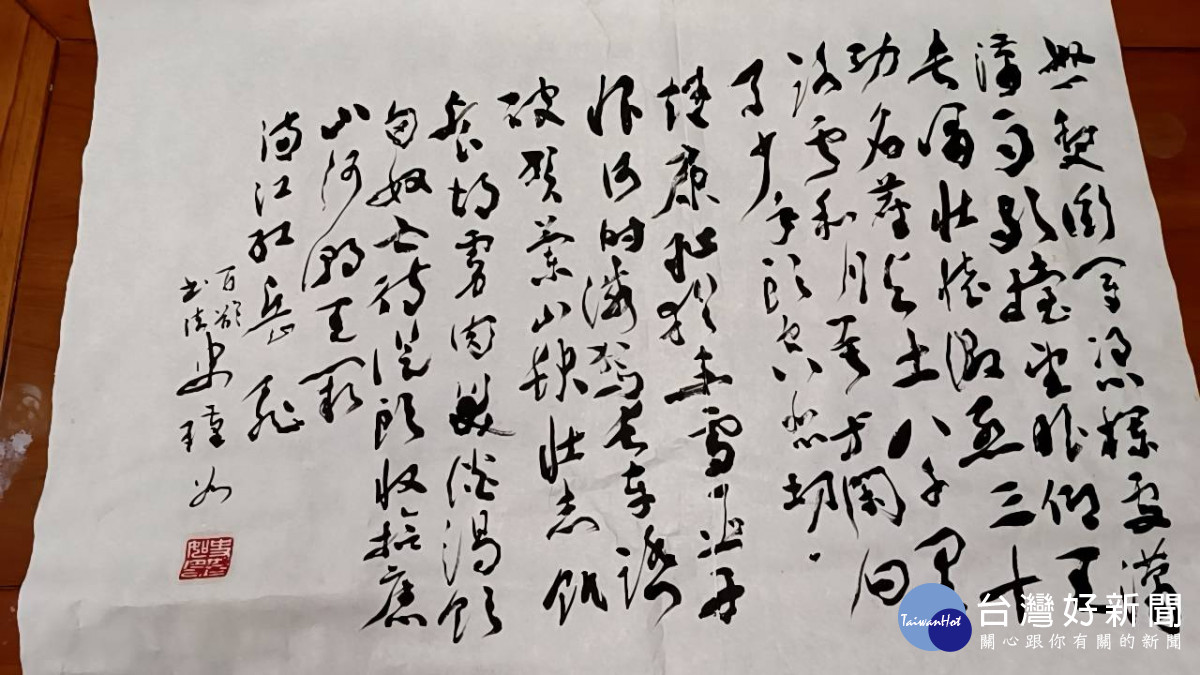 怒髮衝冠憑欄處瀟
瀟雨歇擡望眼仰天
長嘯壯懷激烈三十
功名塵與土八千里
路雲和月莫等閒白
了少年頭空悲切
靖康恥猶未雪臣子
恨何時滅駕長車踏
破賀蘭山缺壯志飢
餐胡虜肉笑談渴飲
匈奴血待從頭收拾舊
山河朝天闕
滿江紅 岳飛
百齡
書法
史瑾如
TaiwanHot
台灣好新聞
關心跟你有關的新聞